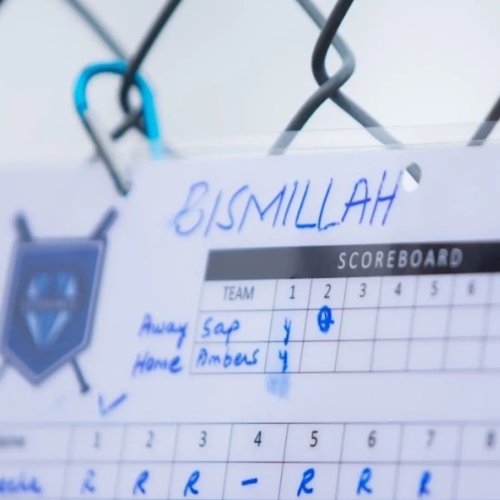 BISMILLAH
SCOREBOARD
TEAM 1 2 3 4 5 6
Away Sap y
Home Ambers y
1 2 3 4 5 6 7 8
R R R - R R R